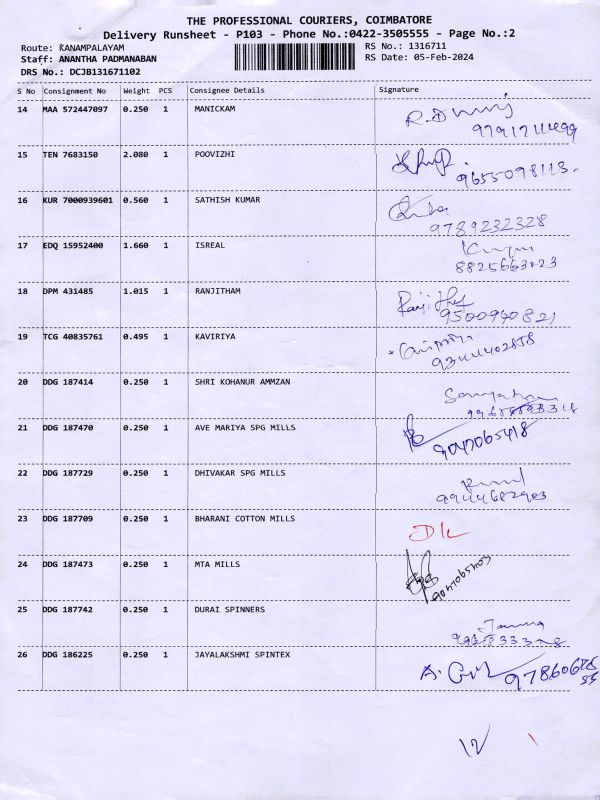 THE PROFESSIONAL COURIERS, COIMBATORE
Delivery Runsheet - P103 - Phone No.:0422-3505555 - Page No.:2
Route: KANAMPALAYAM RS No.: 1316711
Staff: ANANTHA PADMANABAN RS Date: 05-Feb-2024
DRS No.: DCJB131671102
S No Consignment No Weight PCS Consignee Details Signature
14 MAA 572447097 0.250 1 MANICKAM
15 TEN 7683150 2.080 1 POOVIZHI
9655098113.
16 KUR 7000939601 0.560 1 SATHISH KUMAR
9789232328
17 EDQ 15952400 1.660 1 ISREAL
18 DPM 431485 1.015 1 RANJITHAM
9500940821
19 TCG 40835761 0.495 1 KAVIRIYA
9344402858
20 DDG 187414 0.250 1 SHRI KOHANUR AMMZAN
21 DDG 187470 0.250 1 AVE MARIYA SPG MILLS
9047065418
22 DDG 187729 0.250 1 DHIVAKAR SPG MILLS
9944682903
23 DDG 187709 0.250 1 BHARANI COTTON MILLS
24 DDG 187473 0.250 1 MTA MILLS
25 DDG 187742 0.250 1 DURAI SPINNERS
26 DDG 186225 0.250 1 JAYALAKSHMI SPINTEX
12